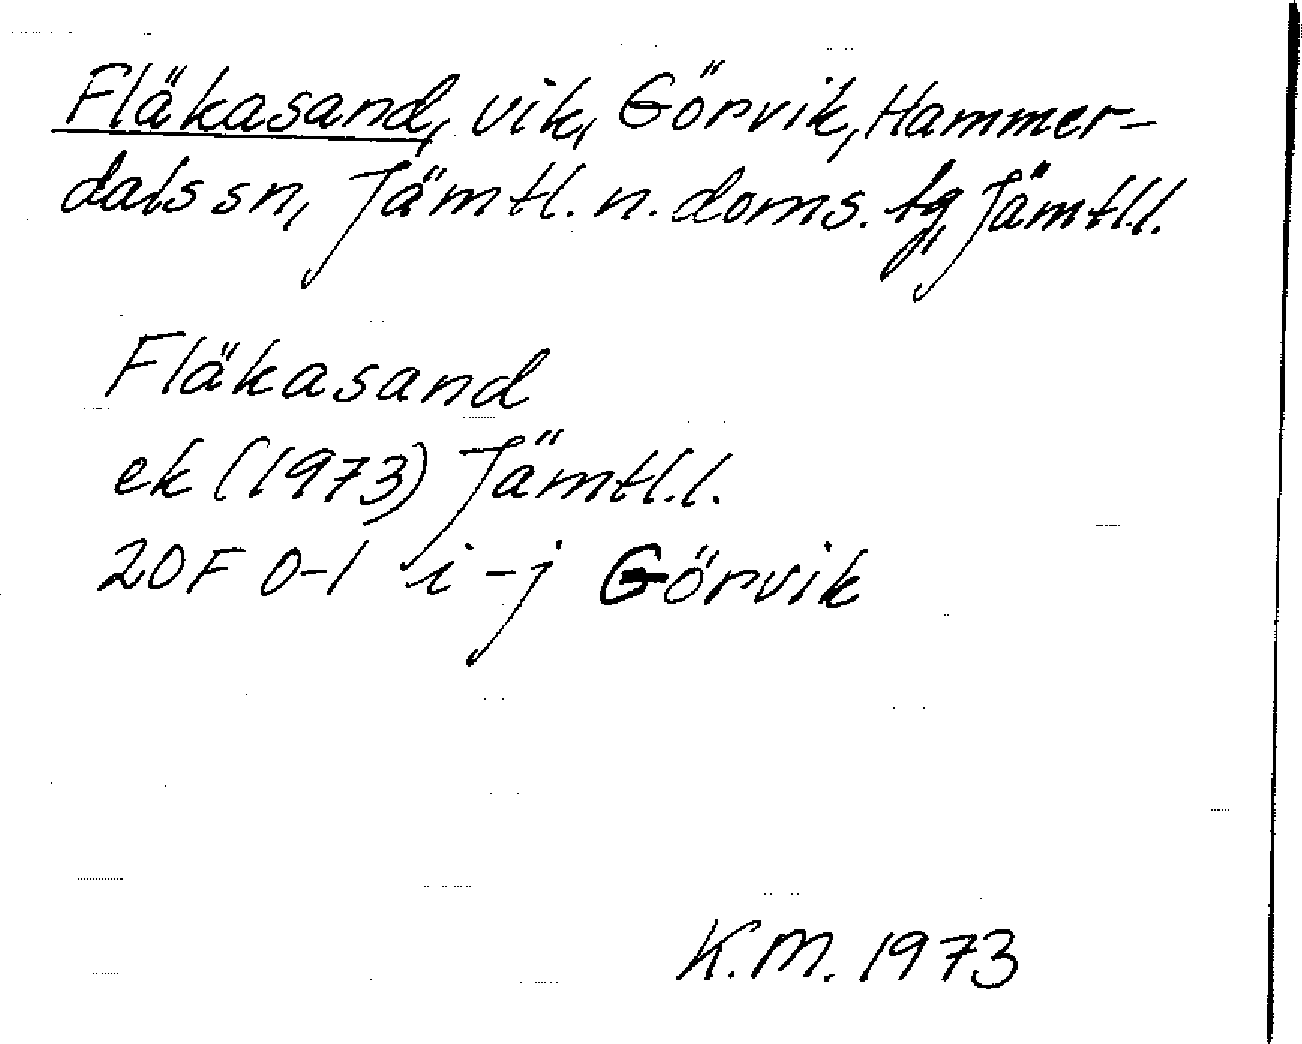 Fläkasand, vik, Görvik, Hammer-
dals sn, Jämtl. n. doms. tg, Jämtl.l.
Fläkasand
ek (1973) Jämtl.l.
20F 0-1 i-j Görvik
K.M. 1973